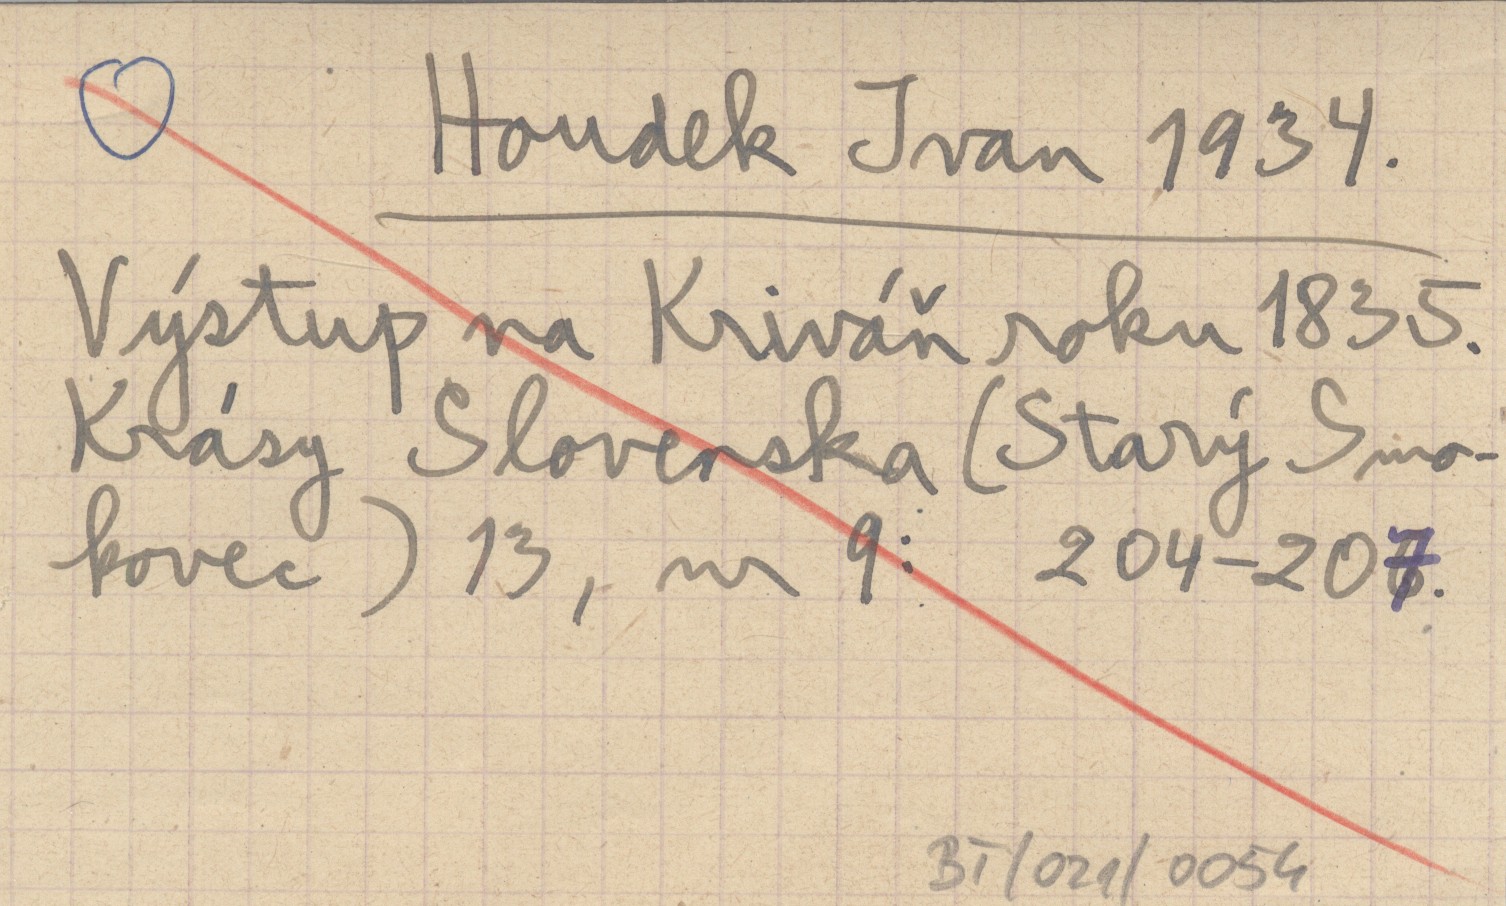 Houdek Ivan 1934.
Výstup na Kriváň roku 1835.
Krásy Slovenska (Starý Smo-
kovec) 13, nr 9: 204-207.
BT/021/0054